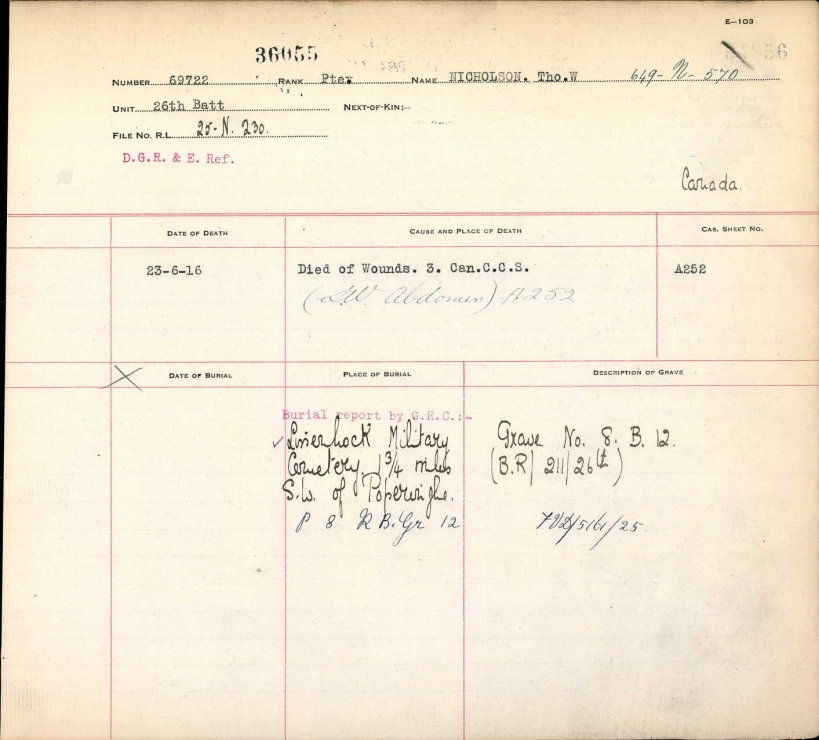 E—103
36055
56
NUMBER 69722 RANK Pte. NAME NICHOLSON. Tho.W 649-N-570
UNIT 26th Batt NEXT-OF-KIN:-
FILE NO. R.L. 25-N. 230.
D.G.R. & E. Ref.
Canada.
DATE OF DEATH CAUSE AND PLACE OF DEATH CAS. SHEET NO.
23-6-16 Died of Wounds. 3. Can.C.C.S. A252
(S.W. Abdomen) A252
DATE OF BURIAL PLACE OF BURIAL DESCRIPTION OF GRAVE
Burial report by G.R.C.:-
Lissenhock Military Grave No. 8. B. 12.
Cemetery 1 3/4 miles (B.R/ 211/26th)
S.W. of Poperinghe.
P 8 R B. Gr 12